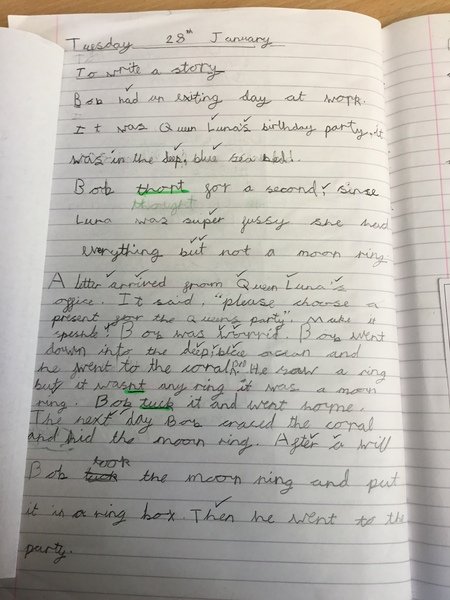 Tuesday 28th January
To write a story
Bob had an exiting day at work.
It was Queen Luna's birthday party, it
was in the deep, blue sea bed!.
Bob thort for a second, sinse
thought
Luna was super fussy she had
everything but not a moon ring
A letter arrived from Queen Luna's
office. It said, "please choose a
present for the Queens party". Make it
speshle! Bob was worrid. Bob went
down into the deep, blue ocean and
he went to the coral. He saw a ring
but it wasnt any ring it was a moon
ring. Bob tuck it and went home.
The next day Bob craced the coral
and hid the moon ring. After a will
took
Bob tuck the moon ring and put
it in a ring box. Then he went to the
party.